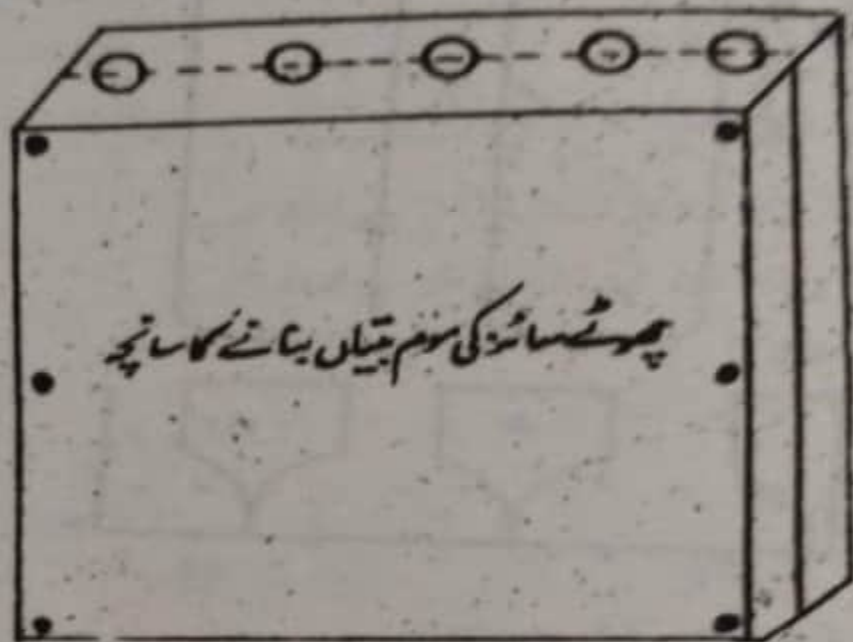 چھوٹے سائز کی موم بتیاں بنانے کا سانچہ